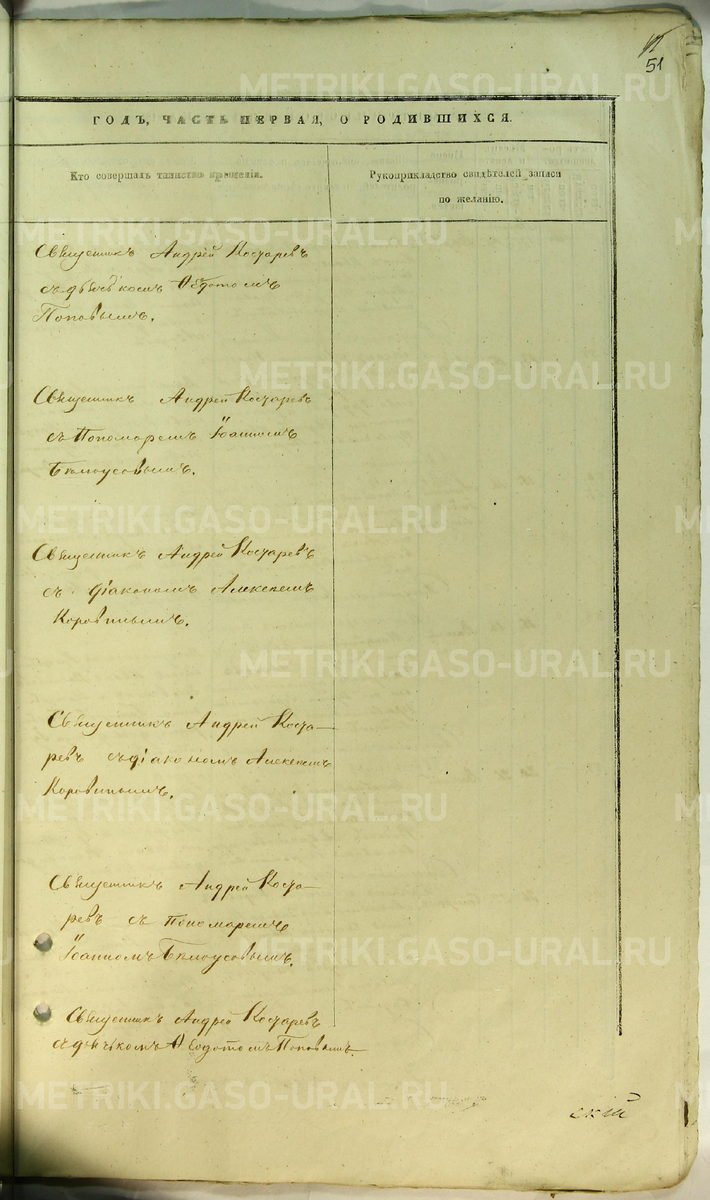 51
ГОДЪ, ЧАСТЬ ПЕРВАЯ, О РОДИВШИХСЯ.
Кто совершалъ таинство крещенія.
Рукоприкладство свидѣтелей записи
по желанію.
Священникъ Андрей Костаревъ
съ дьячькомъ Ѳедотомъ
Поповымъ.
Священникъ Андрей Костаревъ
съ Пономаремъ Іоанномъ
Бѣлоусовымъ.
Священникъ Андрей Костаревъ
съ діакономъ Алексѣемъ
Коровинымъ.
Священникъ Андрей Коста-
ревъ съ діакономъ Алексѣемъ
Коровинымъ.
Священникъ Андрей Коста-
ревъ съ пономаремъ
Іоанномъ Бѣлоусовымъ.
Священникъ Андрей Костаревъ
съ дьячькомъ Ѳедотомъ Поповымъ
скій
METRIKI.GASO-URAL.RU
METRIKI.GASO-URAL.RU
METRIKI.GASO-URAL.RU
METRIKI.GASO-URAL.RU
METRIKI.GASO-URAL.RU
METRIKI.GASO-URAL.RU
METRIKI.GASO-URAL.RU
METRIKI.GASO-URAL.RU